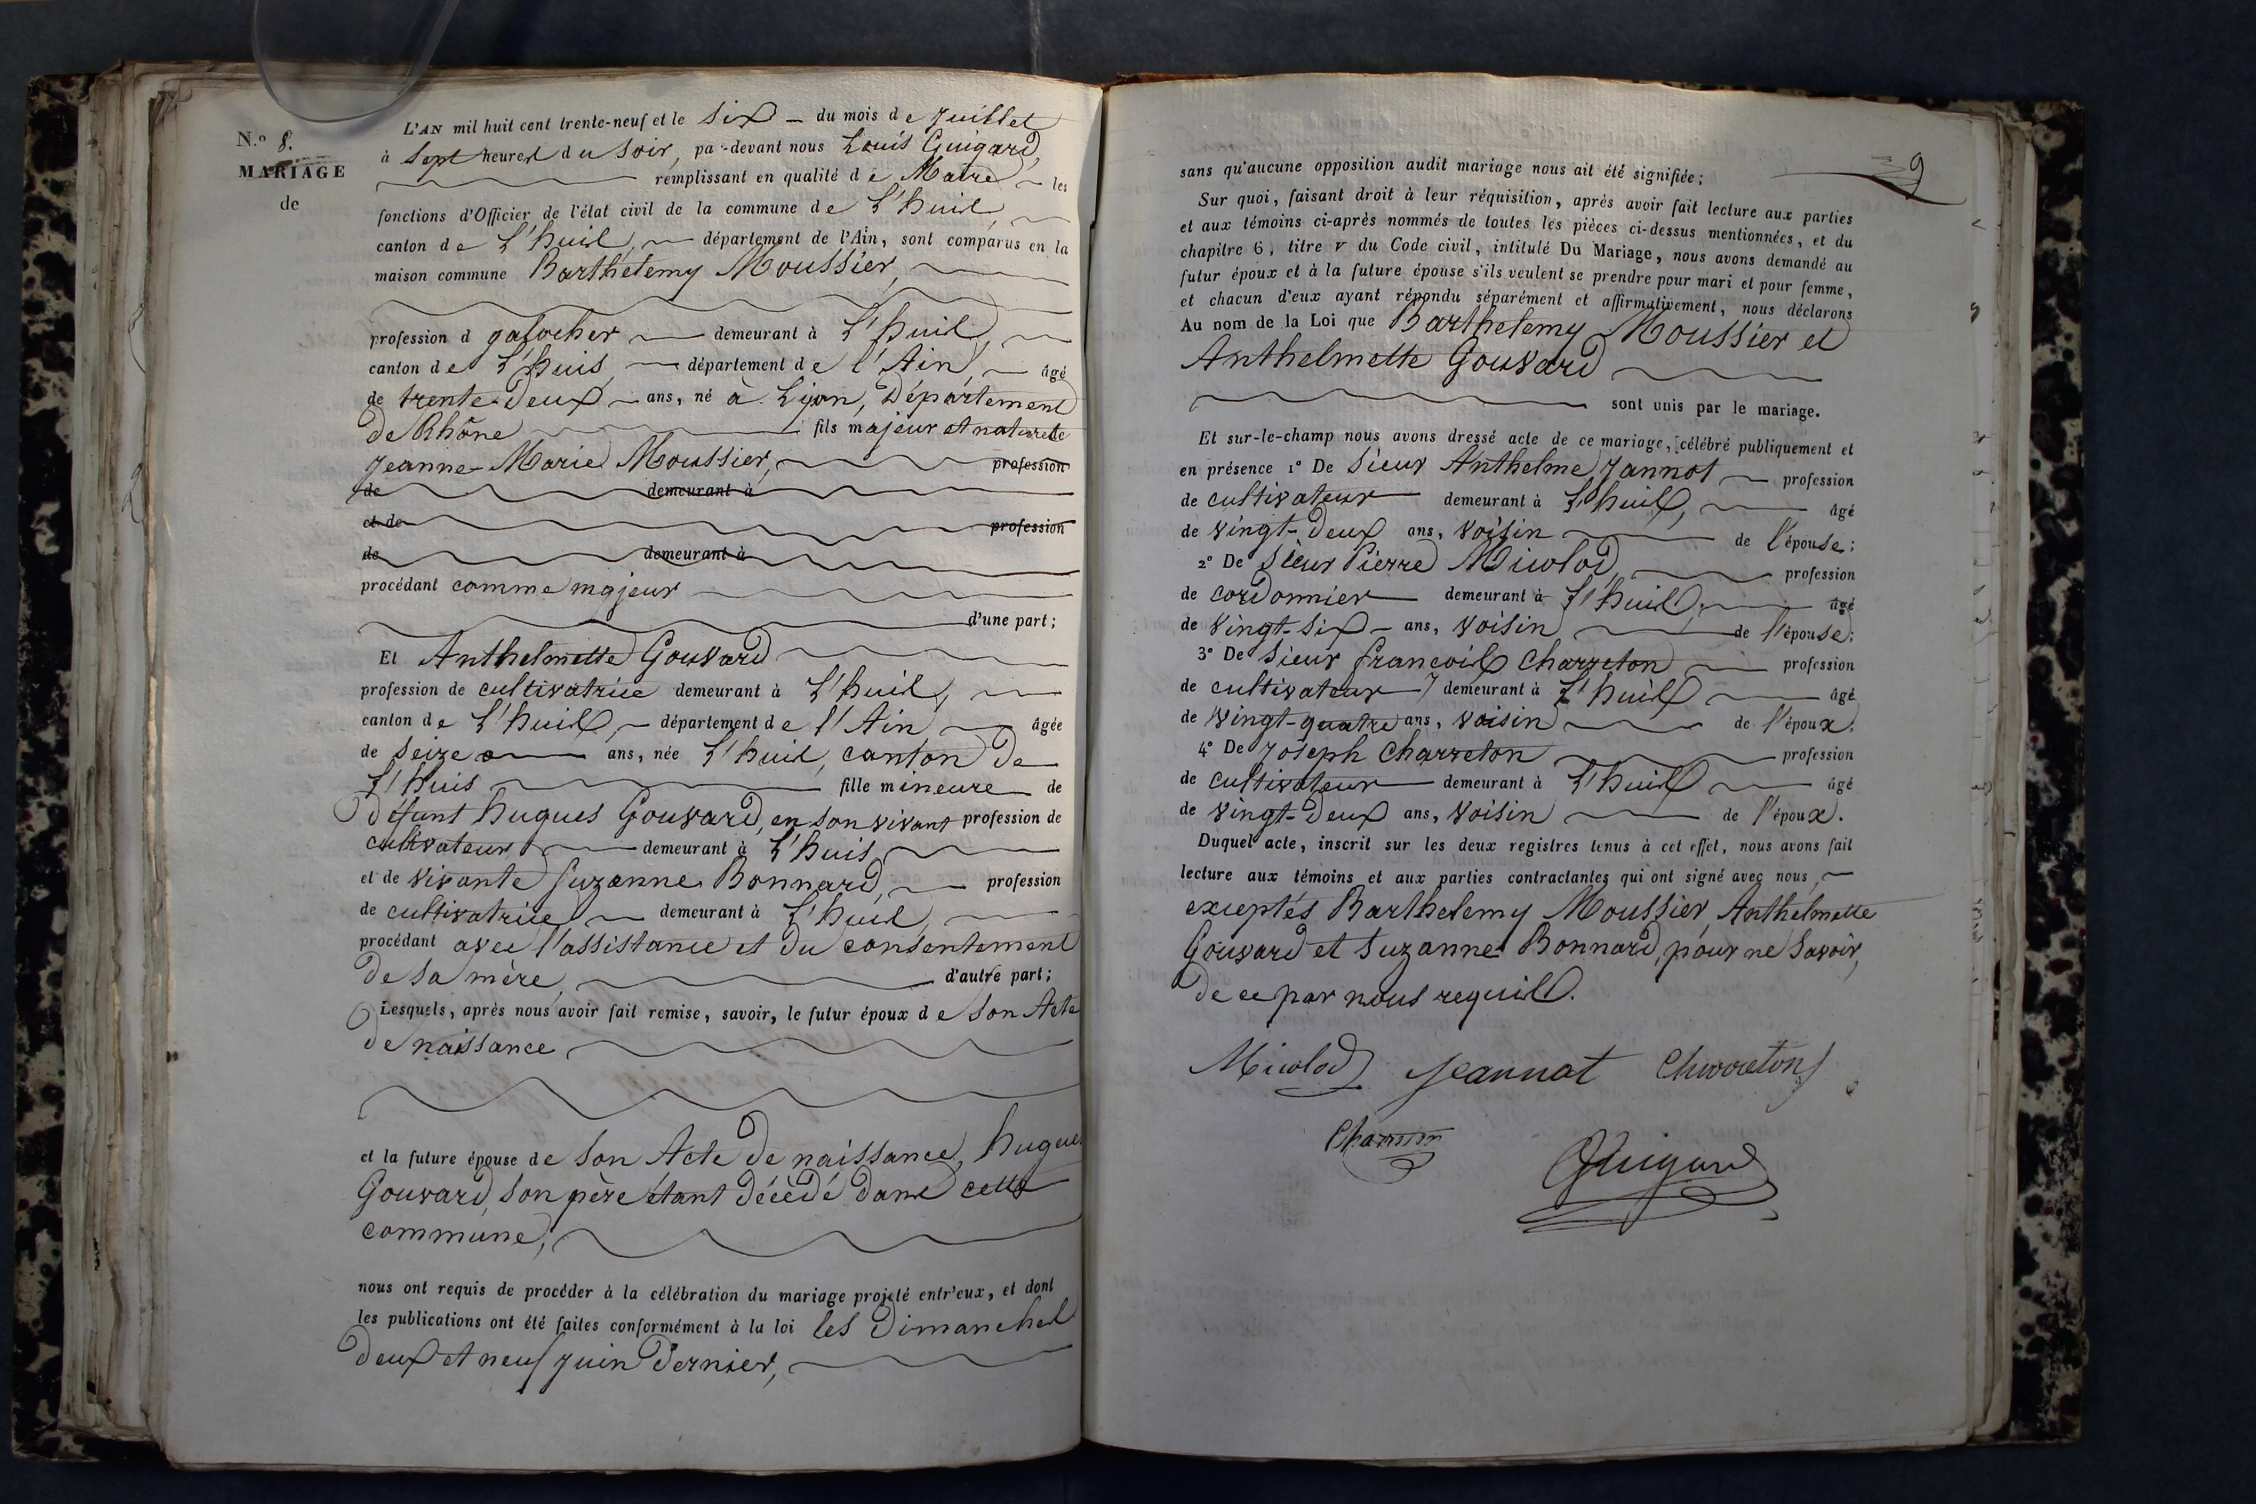 N.° 8.
MARIAGE
de
L'AN mil huit cent trente-neuf et le six du mois de Juillet
à sept heures du soir, pa-devant nous Louis Guigard,
remplissant en qualité de Maire les
fonctions d'Officier de l'état civil de la commune de L'huis,
canton de L'huis, département de l'Ain, sont comparus en la
maison commune Barthelemy Moussier,
profession d galocher demeurant à L'huis,
canton de L'huis, département de l'Ain, âgé
de trente-deux ans, né à Lyon, Département
de Rhône fils majeur et naturel de
Jeanne-Marie Moussier, profession
de demeurant à
et de profession
de demeurant à
procédant comme majeur
d'une part;
Et Anthelmette Gouvard
profession de cultivatrice demeurant à L'huis,
canton de L'huis, département de l'Ain âgée
de seize ans, née L'huis, canton de
L'huis fille mineure de
défunt hugues Gouvard, en son vivant profession de
cultivateur demeurant à L'huis,
et de vivante Suzanne Bonnard, profession
de cultivatrice demeurant à L'huis,
procédant avec l'assistance et du consentement
de sa mère, d'autre part;
Lesquels, après nous avoir fait remise, savoir, le futur époux de son Acte
de naissance,
et la future épouse de son Acte de naissance, hugues
Gouvard, son père étant décédé dans cette
commune,
nous ont requis de procéder à la célébration du mariage projeté entr'eux, et dont
les publications ont été faites conformément à la loi les Dimanches
deux et neuf juin dernier,
9
sans qu'aucune opposition audit mariage nous ait été signifiée;
Sur quoi, faisant droit à leur réquisition, après avoir fait lecture aux parties
et aux témoins ci-après nommés de toutes les pièces ci-dessus mentionnées, et du
chapitre 6, titre v du Code civil, intitulé Du Mariage, nous avons demandé au
futur époux et à la future épouse s'ils veulent se prendre pour mari et pour femme,
et chacun d'eux ayant répondu séparément et affirmativement, nous déclarons
Au nom de la Loi que Barthelemy Moussier et
Anthelmette Gouvard
sont unis par le mariage.
Et sur-le-champ nous avons dressé acte de ce mariage, célébré publiquement et
en présence 1° De Sieur Anthelme Jannot profession
de cultivateur demeurant à L'huis, âgé
de vingt-deux ans, voisin de l'épouse;
2° De Sieur Pierre Micolod, profession
de cordonnier demeurant à L'huis, âgé
de vingt-six ans, voisin de l'épouse;
3° De Sieur françois Charreton profession
de cultivateur demeurant à L'huis âgé
de vingt-quatre ans, voisin de l'époux.
4° De Joseph Charreton profession
de cultivateur demeurant à L'huis âgé
de vingt-deux ans, voisin de l'époux.
Duquel acte, inscrit sur les deux registres tenus à cet effet, nous avons fait
lecture aux témoins et aux parties contractantes qui ont signé avec nous,
exceptés Barthelemy Moussier, Anthelmette
Gouvard et Suzanne Bonnard, pour ne savoir,
de ce par nous requis.
Micolod Jeannot Charreton
Guigard